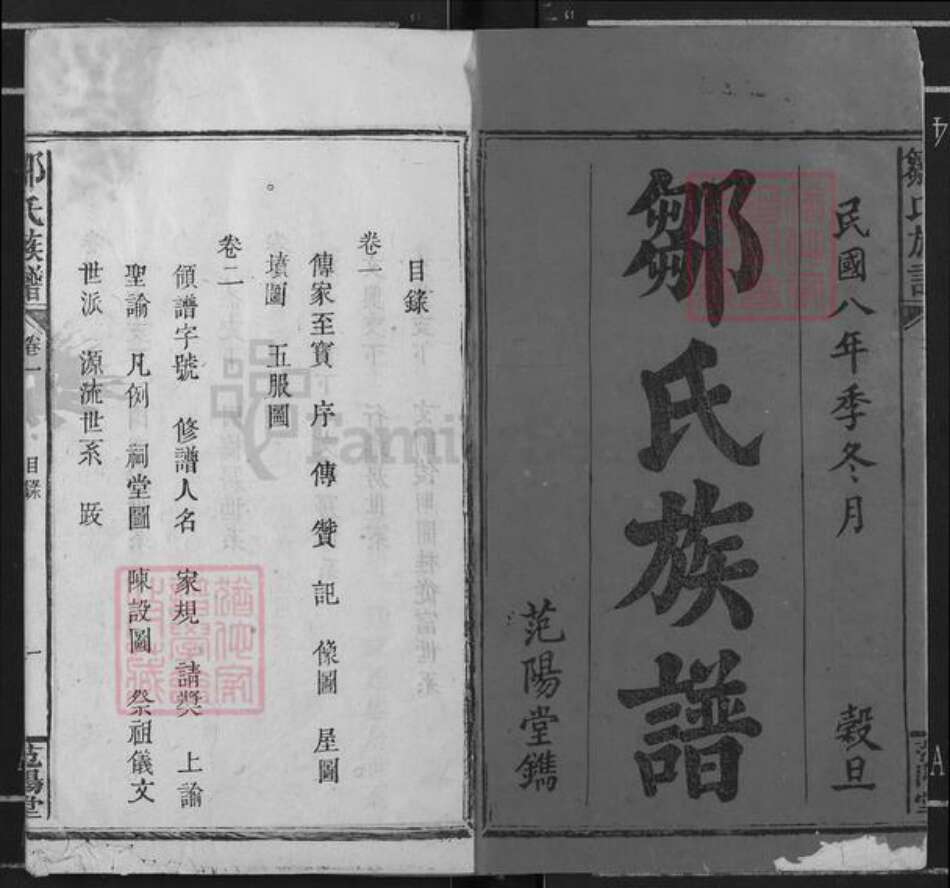 民國八年季冬月 穀旦
鄒氏族譜
范陽堂鐫
目錄
卷一
傳家至寶 序 傳贊 記 像圖 屋圖
墳圖 五服圖
卷二
領譜字號 修譜人名 家規 請獎 上諭
聖諭 凡例 祠堂圖 陳設圖 祭祖儀文
世派 源流世系 跋
鄒氏族譜 卷一 目錄 一 范陽堂